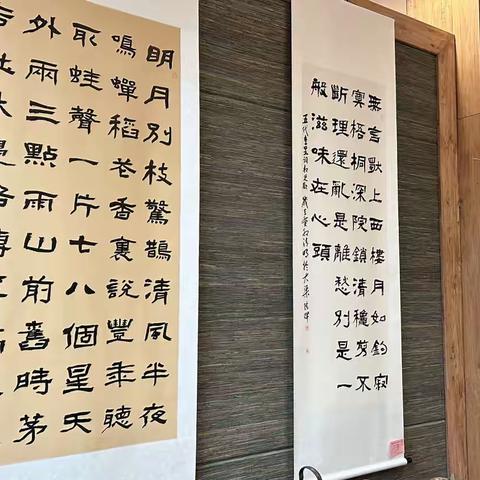 無言獨上西樓月如鉤寂
寞梧桐深院鎖清龝剪不
斷理還亂是離愁別是一
般滋味在心頭
五代李煜詞相見歡
明月別枝驚鵲清風半夜
鳴蟬稻花香裏說豐年聽
取蛙聲一片七八個星天
外兩三點雨山前舊時茅
店社林邊路轉溪橋